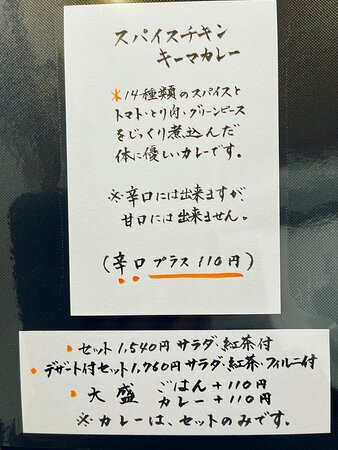 スパイスチキン
キーマカレー
*14種類のスパイスと
トマト・とり肉・グリーンピース
をじっくり煮込んだ
体に優しいカレーです。
※辛口には出来ますが、
甘口には出来ません。
(辛口プラス110円)
・セット1,540円 サラダ・紅茶付
・デザート付セット1,760円 サラダ・紅茶・フィルニ付
・大盛 ごはん+110円
カレー+110円
※カレーは、セットのみです。